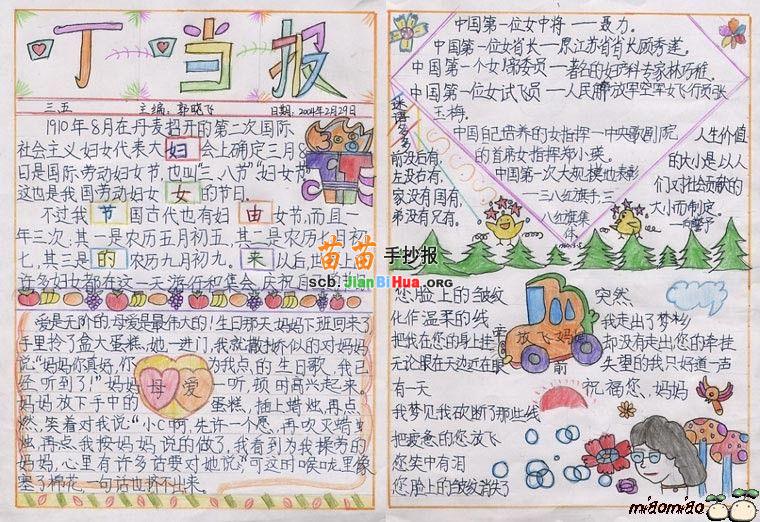 叮当报
三五 主编:郭晓飞 日期:2004年2月29日
1910年8月在丹麦召开的第二次国际
社会主义妇女代表大妇会上确定三月8
日是国际劳动妇女节,也叫"三八节""妇女节"
这也是我国劳动妇女女的节日。
不过我节国古代也有妇由女节,而且一
年三次:其一是农历五月初五,其二是农历七月初
七,其三是的农历九月初九。来以后
许多妇女都在这一天游行和集会,庆祝自己的
苗苗手抄报
scb.JianBiHua.ORG
爱是无价的,母爱是最伟大的!生日那天,妈妈下班回来了
手里拎了盒大蛋糕,她一进门,我就撒娇似的对妈妈
说:"妈妈你真好,你为我点的,生日歌,我已
经听到了!"妈妈母爱一听,顿时高兴起来。
妈妈放下手中的蛋糕,插上蜡烛,再点
燃,笑着对我说:"小C啊,先许一个愿,再吹灭蜡
烛,再点我按妈妈说的做了,我看到为我操劳的
妈妈,心里有许多话要对她说;可这时喉咙里像
塞了棉花,一句话也挤不出来。
中国第一位女中将——聂力。
中国第一位女省长——原江苏省省长顾秀莲。
中国第一个女1席委员——著名的妇产科专家林巧稚。
中国第一位女试飞员——人民解放军空军女飞行员张
玉梅。
中国自己培养的女指挥—中央歌剧院
的首席女指挥郑小英。
中国第一次大规模地表彰
—三八红旗手,三
八红旗集
体。
谜语多多
前没后有,
左没右有,
家没有国有,
弟没有兄有。
人生价值
的大小是以人
们对社会贡献的
大小而制定。
—向警予
您脸上的皱纹
化作温柔的线
把我在您的身上挂牵
无论眼在天边近在眼前
放飞妈妈
有一天
我梦见我砍断了那些线
把疲惫的您放飞
您笑中有泪
您脸上的皱纹消失了
突然,
我走出了梦乡
却没有走出您的牵挂
失望的我只好道一声
祝福您,妈妈
miaomiao